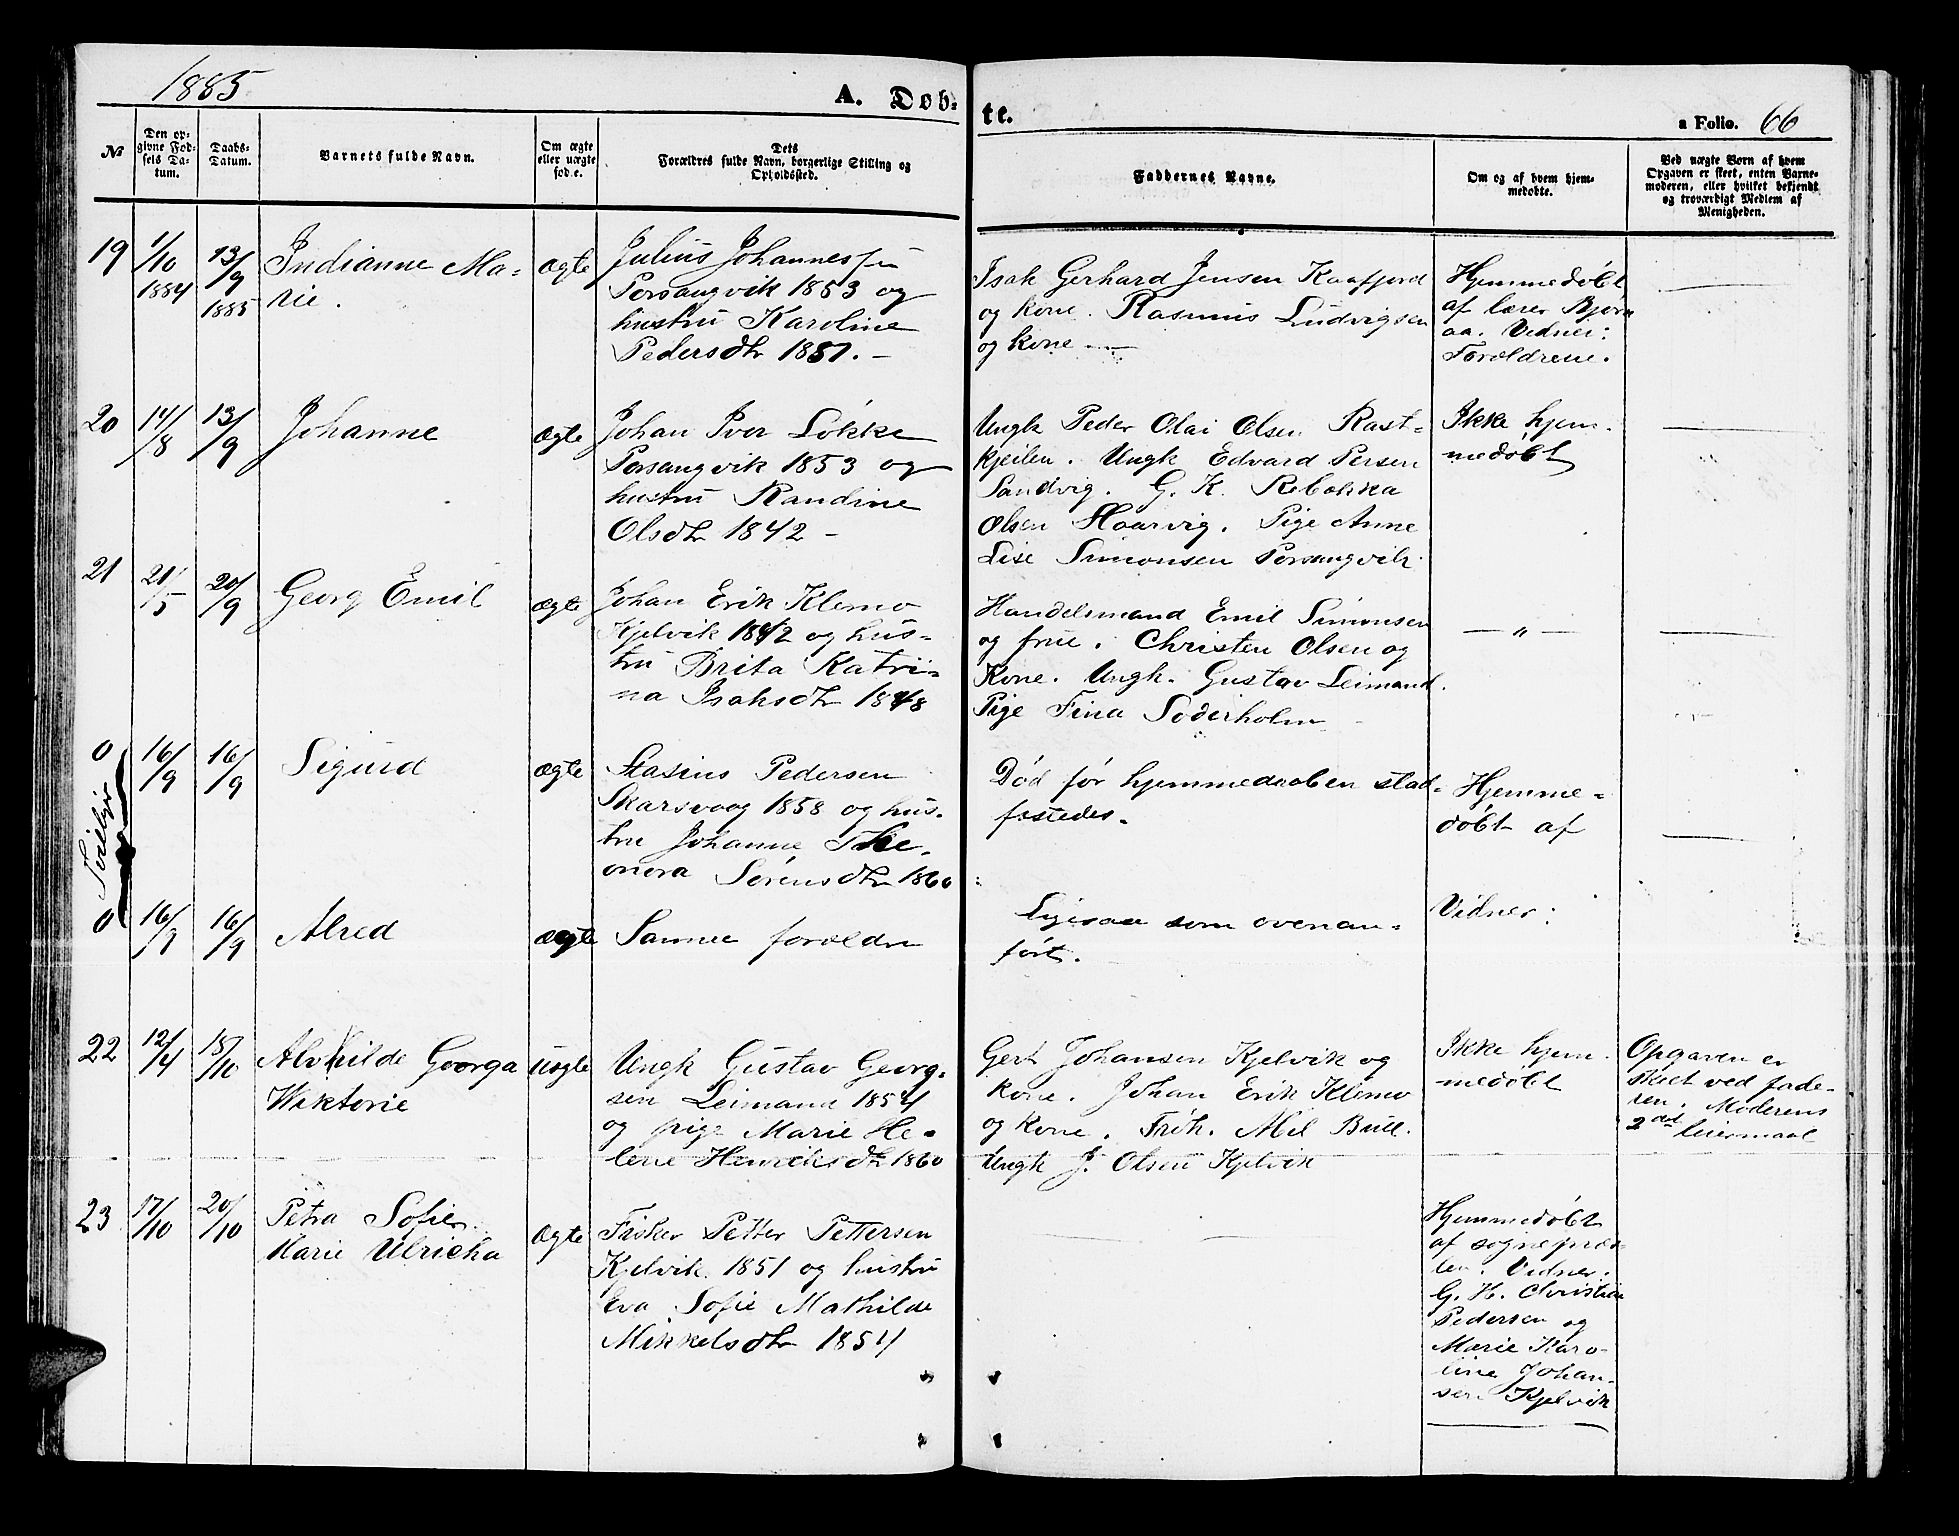 1885
A. Døb-
te.
a Folio. 66
No
Den op-
givne Fød-
sels Da-
tum.
Daabs-
Datum.
Barnets fulde Navn.
Om ægte
eller uægte
fød.e.
Dets
Forældres fulde Navn, borgerlige Stilling og
Opholdssted.
Faddernes Navne.
Om og af hvem hjem-
medøbte.
Ved uægte Børn af hvem
Opgaven er skeet, enten Barne-
moderen, eller hvilket bekjendt
og troværdigt Medlem af
Menigheden.
19
1/10
1884
13/9
1885
Indianne Ma-
rie.
ægte
Julius Johannessen
Porsangvik 1853 og
hustru Karoline
Pedersdtr 1851. -
Isak Gerhard Jensen Kaafjord
og kone. Rasmus Ludvigsen
og kone. -
Hjemmedøbt
af lærer Bjørn
aa. Vidner:
Forældrene.
20
14/8
13/9
Johanne
ægte
Johan Iver Løkke
Porsangvik 1853 og
hustru Randine
Olsdtr 1842 -
Ungk Peder Olai Olsen Rast-
kjeilen. Ungk Edvard Persen
Sandvig. G. K. Rebekka
Olsen Haarvig. Pige Anne
Lise Simonsen Porsangvik.
Ikke hjem-
medøbt
21
21/5
20/9
Georg Emil
ægte
Johan Erik Klemo
Kjelvik 1842 og hus-
tru Brita Katri-
na Isaksdtr 1848
Handelsmand Emil Simonsen
og frue. Christen Olsen og
Kone. Ungk. Gustav Leimand.
Pige Fina Søderholm
— " —
Tvillinger
0
16/9
16/9
Sigurd
ægte
Stasius Pedersen
Skarsvaag 1858 og hus-
tru Johanne The-
onora Sørensdtr 1860
Død før hjemmedaaben stad-
fæstedes.
Hjemme-
døbt af
0
16/9
16/9
Alred
ægte
Samme forældre
Ligesaa som ovenan-
ført.
Vidner:
22
12/4
15/10
Alvhilde Georga
Wiktorie
uægte
Ungk Gustav Georg-
sen Leimand 1854
og pige Marie He-
lene Henriksdtr 1860
Gert Johansen Kjelvik og
kone. Johan Erik Klemo
og kone. Frøk. Mil Bull.
Ungk J. Olsen Kjelvik
Ikke hjem-
medøbt
Opgaven er
skeet ved fade-
ren. Moderens
2det leiermaal
23
17/10
20/10
Petra Sofie
Marie Ulricka
ægte
Fisker Petter Pettersen
Kjelvik. 1851 og hustru
Eva Sofie Mathilde
Mikkelsdtr 1854
Hjemmedøbt
af sognepræs-
ten. Vidner.
G. H. Christian
Pedersen og
Marie Karo-
line Johan-
sen Kjelvik